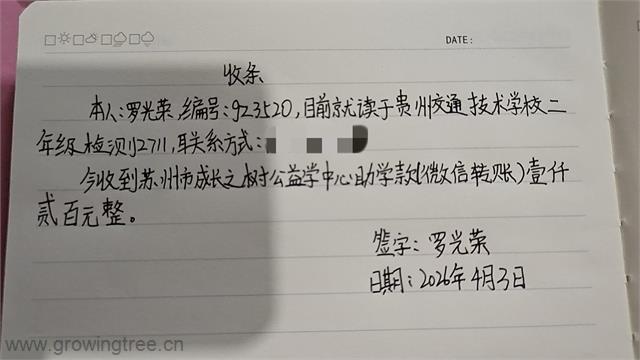 DATE:
收条
本人:罗光荣,编号:923520,目前就读于贵州交通技术学校二
年级检测2711,联系方式:
今收到苏州市成长之树公益学中心助学款(微信转账)壹仟
贰百元整。
签字:罗光荣
日期:2026年4月3日
www.growingtree.cn